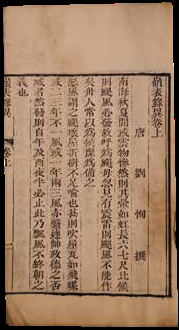 嶺表錄異卷上
唐 劉 恂 撰
南海秋夏間或雲物慘然則其暈如虹長六七尺比候
則颶風必發故呼為颶母忽見有震雷則颶風不能作
矣舟人常以為候豫為備之
惡風謂之颶壞屋折樹不足喻也甚則吹屋瓦如飛蝶
或二三年不一風或一年兩三風亦繫連帥政德之否
臧者然發則自午及酉夜半必止此乃飄風不終朝之
義也
嶺表錄異 卷上